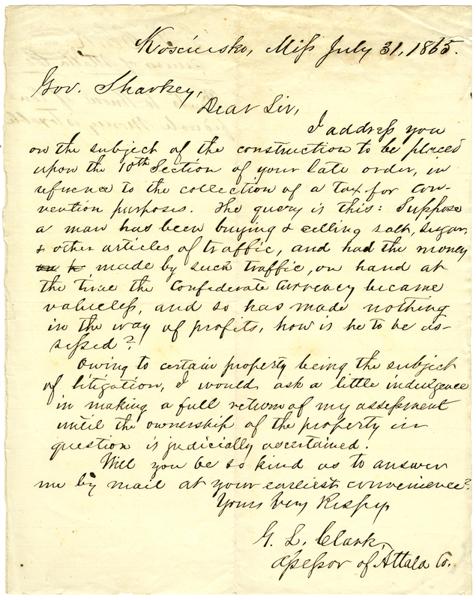 Kosciusko, Miss July 31, 1865.
Gov. Sharkey,
Dear Sir,
I address you
on the subject of the construction to be placed
upon the 10th Section of your late order, in
reference to the collection of a tax for con-
vention purposes. The query is this: Suppose
a man has been buying & selling salt, sugar,
& other articles of traffic, and had the money
made by such traffic, on hand at
the time the Confederate Currency became
valueless, and so has made nothing
in the way of profits, how is he to be as-
sessed?
Owing to certain property being the subject
of litigation, I would ask a little indulgence
in making a full return of my assessment
until the ownership of the property in
question is judicially ascertained.
Will you be so kind as to answer
me by mail at your earliest convenience?
Yours Very Respy,
G. L. Clark,
Assessor of Attala Co.